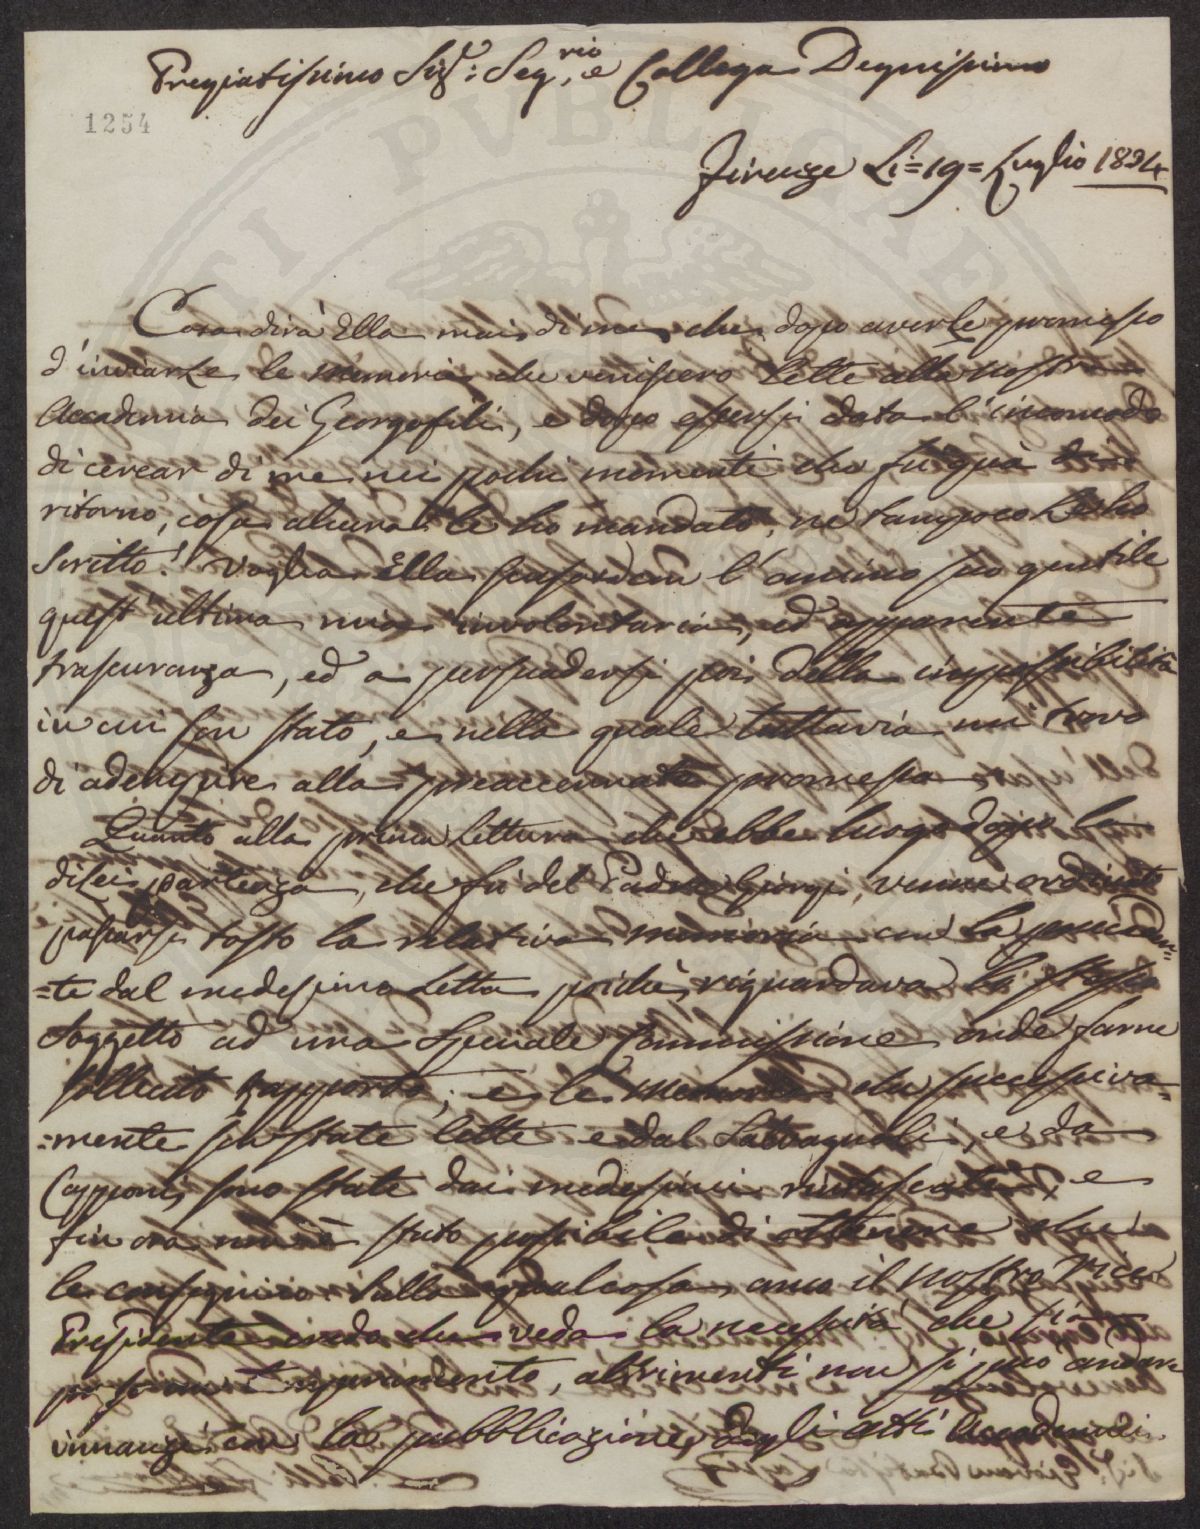 Pregiatissimo Sig.r: Seg.rio, e Collega Degnissimo
1254
Firenze Li = 19 = Luglio 1834
Cosa dirà Ella mai di me, che dopo averle promesso
d'inviarle le memorie che venissero lette alla nostra
Accademia dei Georgofili, e dopo essersi data l'incomodo
di cercar di me nei pochi momenti che fu quà di
ritorno, cosa alcuna le ho mandato, ne tampoco Le ho
Scritto! Voglia Ella l'animo suo gentile
quest'ultima mia involontaria, ed apparente
trascuranza, ed a persuadersi poi della impossibilità
in cui son stato, e nella quale tuttavia mi trovo
di adempire alla preaccennata promessa.
Quanto alla prima lettura che ebbe luogo dopo la
di lei partenza, che fù del Padre Giorgi, venne ordinato
passarsi tosto la relativa memoria con la preceden=
=te dal medesimo Letta poichè riguardava lo stesso
Soggetto ad una Speciale Commissione onde farne
sollecito rapporto; e le memorie che successiva=
=mente son state lette e dal, e da
Capponi, sono state dai medesimi, e
fin ora non è stato possibile di ottenere che
le consegnino. Sulla qual cosa anco il nostro Vice
Presidente credo che veda la necessità che sia
preso un, altrimenti non si può andare
innanzi con la pubblicazione degli atti Accademici.